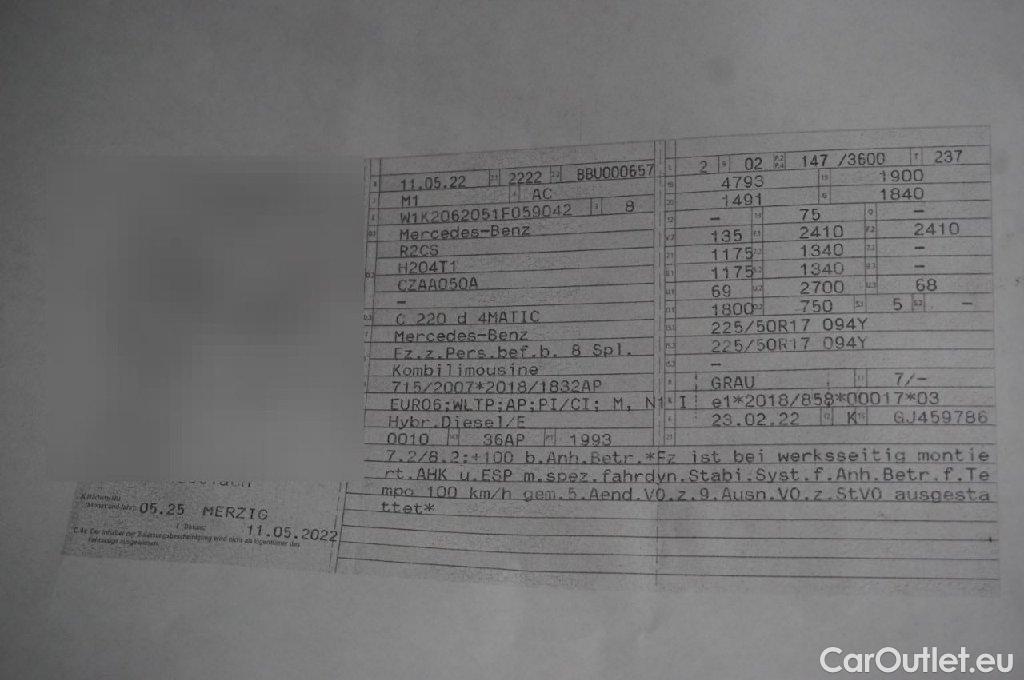 11.05.22 2222 BBU000657
M1 AC
W1K2062051F059042 8
Mercedes-Benz
R2CS
H204T1
CZAA050A
–
C 220 d 4MATIC
Mercedes-Benz
Fz.z.Pers.bef.b. 8 Spl.
Kombilimousine
715/2007*2018/1832AP
EURO6;WLTP;AP;PI/CI; M, N1 I
Hybr.Diesel/E
0010 36AP 1993
2 02 147 /3600 237
4793 1900
1491 1840
– 75 –
135 2410 2410
1175 1340 –
1175 1340 –
69 2700 68
1800 750 5 –
225/50R17 094Y
225/50R17 094Y
–
GRAU 7/–
e1*2018/858*00017*03
23.02.22 K GJ459786
7.2/8.2:+100 b.Anh.Betr.*Fz ist bei werksseitig montie
rt.AHK u.ESP m.spez.fahrdyn.Stabi.Syst.f.Anh.Betr.f.Te
mpo 100 km/h gem.5.Aend.VO.z.9.Ausn.VO.z.StVO ausgesta
ttet*
05.25 MERZIG
11.05.2022
CarOutlet.eu